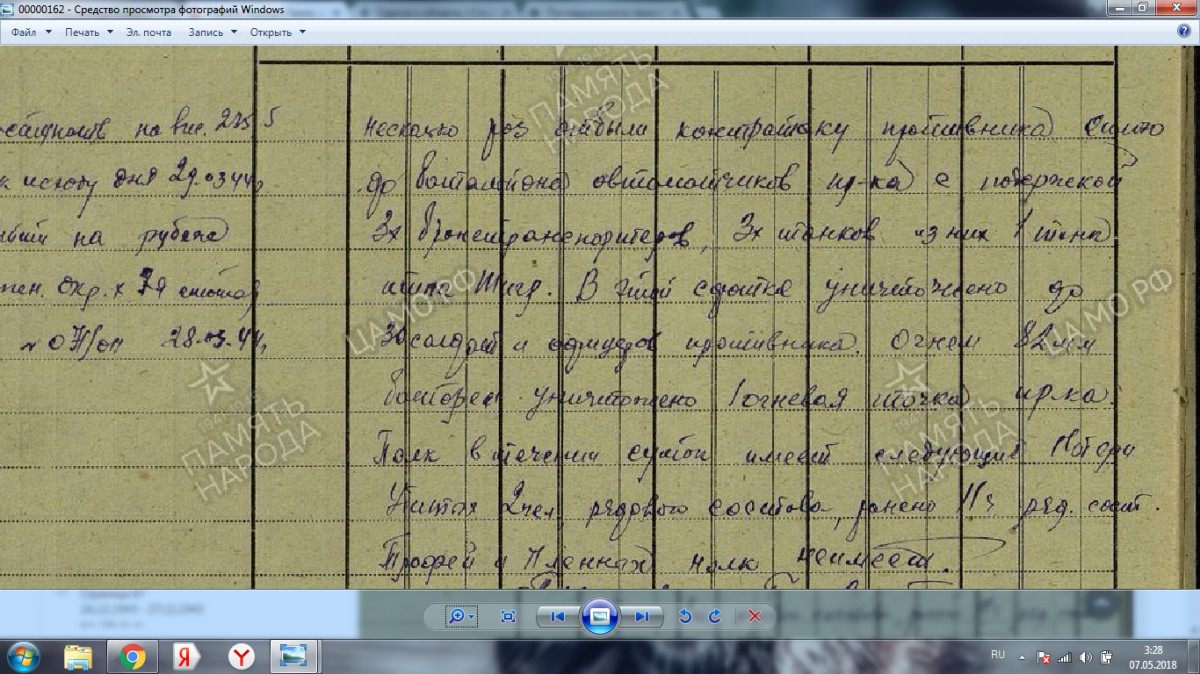 00000162 - Средство просмотра фотографий Windows
Файл Печать Эл. почта Запись Открыть
на выс. 235,5
к исходу дня 29.03.44,
на рубеже
28.03.44,
несколько роз отбили контратаку противника силою
до баталиона овтоматчиков пр-ка с подержкой
3х бронетранспортеров, 3х танков из них 1 танк
типа Тигр. В этой сфатке уничтожено до
30 солдат и офицеров противника. Огнем 82 мм
батореи уничтожено 1 огневая точка пр-ка.
Полк в течении суток имеет следующий Потери
Убитых 2 чел, рядового состова, ранено 11ч ряд. сост.
Трофей и Пленных полк неимеет.
ПАМЯТЬ НАРОДА
ЦАМО РФ
ЦАМО РФ
ПАМЯТЬ НАРОДА
ПАМЯТЬ НАРОДА
RU
3:28
07.05.2018